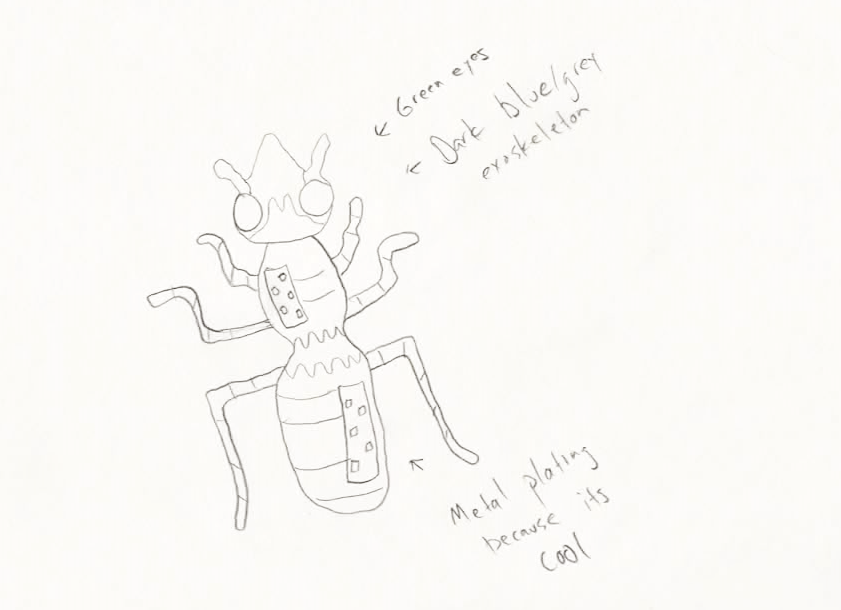 Green eyes
Dark blue/grey
exoskeleton
Metal plating
because its
cool